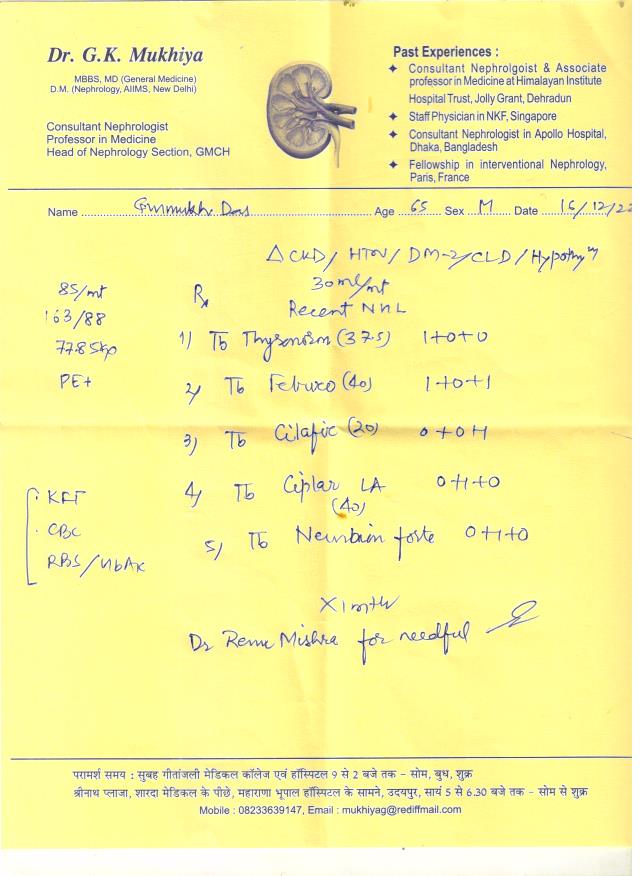 Dr. G.K. Mukhiya
MBBS, MD (General Medicine)
D.M. (Nephrology, AIIMS, New Delhi)
Consultant Nephrologist
Professor in Medicine
Head of Nephrology Section, GMCH
Past Experiences :
✦ Consultant Nephrolgoist & Associate
professor in Medicine at Himalayan Institute
Hospital Trust, Jolly Grant, Dehradun
✦ Staff Physician in NKF, Singapore
✦ Consultant Nephrologist in Apollo Hospital,
Dhaka, Bangladesh
✦ Fellowship in interventional Nephrology,
Paris, France
Name Gurmukh Das Age 65 Sex M Date 16/12/22
Δ CKD / HTN / DM-2 / CLD / Hypothy
30 ml/mt
Recent NHL
85/mt
163/88
77.85kp
PE+
Rx
1) Tb Thyronorm (37.5) 1+0+0
2) Tb Febuxo (40) 1+0+1
3) Tb (20) 0+0+1
4) Tb Ciplar LA 0+1+0
(40)
5) Tb forte 0+1+0
· KFT
· CBC
RBS / HbA1c
X 1 mth
Dr Renu Mishra for needful
परामर्श समय : सुबह गीतांजली मेडिकल कॉलेज एवं हॉस्पिटल 9 से 2 बजे तक – सोम, बुध, शुक्र
श्रीनाथ प्लाजा, शारदा मेडिकल के पीछे, महाराणा भूपाल हॉस्पिटल के सामने, उदयपुर, सायं 5 से 6.30 बजे तक – सोम से शुक्र
Mobile : 08233639147, Email : mukhiyag@rediffmail.com